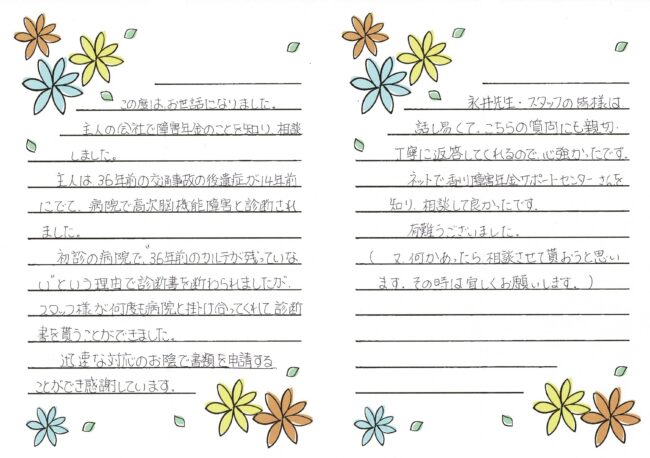 この度は、お世話になりました。
主人の会社で障害年金のことを知り、相談
しました。
主人は、36年前の交通事故の後遺症が14年前
にでて、病院で高次脳機能障害と診断され
ました。
初診の病院で、"36年前のカルテが残っていな
い"という理由で診断書を断わられましたが、
スタッフ様が何度も病院と掛け合ってくれて診断
書を貰うことができました。
迅速な対応のお陰で書類を申請する
ことができ感謝しています。
永井先生・スタッフの皆様は
話し易くて、こちらの質問にも親切・
丁寧に返答してくれるので、心強かったです。
ネットで香川障害年金サポートセンターさんを
知り、相談して良かったです。
有難うございました。
( 又、何かあったら相談させて貰おうと思い
ます。その時は宜しくお願いします。)